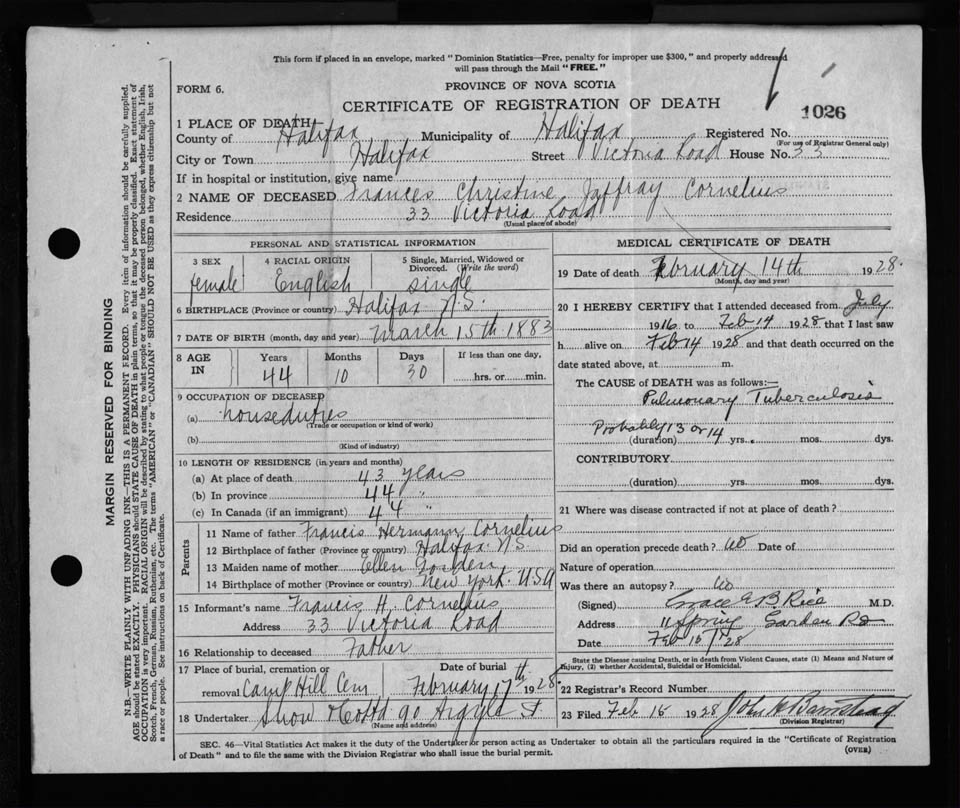 This form if placed in an envelope, marked "Dominion Statistics—Free, penalty for improper use $300," and properly addressed
will pass through the Mail "FREE."
FORM 6.
PROVINCE OF NOVA SCOTIA
CERTIFICATE OF REGISTRATION OF DEATH
1026
1 PLACE OF DEATH
County of Halifax Municipality of Halifax Registered No.
(For use of Registrar General only)
City or Town Halifax Street Victoria Road House No. 33
If in hospital or institution, give name
2 NAME OF DECEASED Frances Christine Jaffray Cornelius
Residence 33 Victoria Road
(Usual place of abode)
PERSONAL AND STATISTICAL INFORMATION
3 SEX 4 RACIAL ORIGIN 5 Single, Married, Widowed or Divorced. (Write the word)
female English single
6 BIRTHPLACE (Province or country) Halifax N.S.
7 DATE OF BIRTH (month, day and year) March 15th 1883
8 AGE IN Years Months Days If less than one day,
44 10 30 hrs. or min.
9 OCCUPATION OF DECEASED
(a) houseduties
(Trade or occupation or kind of work)
(b)
(Kind of industry)
10 LENGTH OF RESIDENCE (in years and months)
(a) At place of death 43 years
(b) In province 44 "
(c) In Canada (if an immigrant) 44 "
Parents
11 Name of father Francis Hermann Cornelius
12 Birthplace of father (Province or country) Halifax N.S
13 Maiden name of mother Ellen
14 Birthplace of mother (Province or country) New York. USA
15 Informant's name Francis H. Cornelius
Address 33 Victoria Road
16 Relationship to deceased Father
17 Place of burial, cremation or Date of burial
removal Camp Hill Cem February 17th 1928.
18 Undertaker Snow & Co Ltd 90 Argyle St
(Name and address)
MEDICAL CERTIFICATE OF DEATH
19 Date of death February 14th 1928.
(Month, day and year)
20 I HEREBY CERTIFY that I attended deceased from July
1916 to Feb 14 1928 that I last saw
h alive on Feb 14 1928 and that death occurred on the
date stated above, at m.
The CAUSE of DEATH was as follows:—
Pulmonary Tuberculosis
Probably 13 or 14
(duration) yrs. mos. dys.
CONTRIBUTORY.
(duration) yrs. mos. dys.
21 Where was disease contracted if not at place of death?
Did an operation precede death? no Date of
Nature of operation
Was there an autopsy? no
(Signed) Grace E B. Rice M.D.
Address 11 Spring Garden Rd
Date Feb 15/28
State the Disease causing Death, or in death from Violent Causes, state (1) Means and Nature of
Injury, (2) whether Accidental, Suicidal or Homicidal.
22 Registrar's Record Number
23 Filed Feb 15 1928 John
(Division Registrar)
SEC. 46—Vital Statistics Act makes it the duty of the Undertaker or person acting as Undertaker to obtain all the particulars required in the "Certificate of Registration
of Death" and to file the same with the Division Registrar who shall issue the burial permit.
(OVER)
MARGIN RESERVED FOR BINDING
N.B.—WRITE PLAINLY WITH UNFADING INK—THIS IS A PERMANENT RECORD. Every item of information should be carefully supplied.
AGE should be stated EXACTLY. PHYSICIANS should STATE CAUSE OF DEATH in plain terms, so that it may be properly classified. Exact statement of
OCCUPATION is very important. RACIAL ORIGIN will be described by stating to what people or tongue the deceased person belonged, whether English, Irish,
Scotch, French, German, Russian, Ruthenian, etc. The terms "AMERICAN" or "CANADIAN" SHOULD NOT BE USED as they express citizenship but not
a race or people. See instructions on back of Certificate.